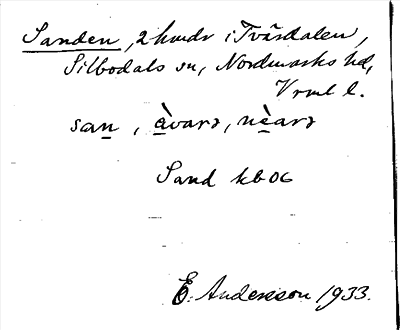 Sanden, 2 hmdr i Tvärdalen,
Silbodals sn, Nordmarks hd,
Vrml l.
san, àvarə, nèarə
Sand kb 06
E. Andersson 1933.